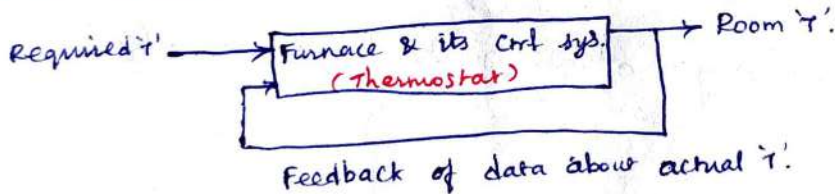 Required 'T'
Furnace & its Cnrl sys.
(Thermostat)
Room 'T'.
Feedback of data about actual 'T'.